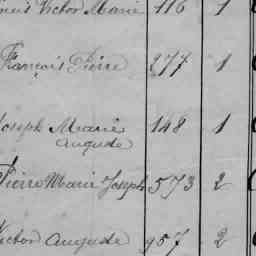 Victor Marie 116 1
François Pierre 277 1
Joseph Marie 148 1
Auguste
Pierre Marie Joseph 573 2
Victor Auguste 957 2